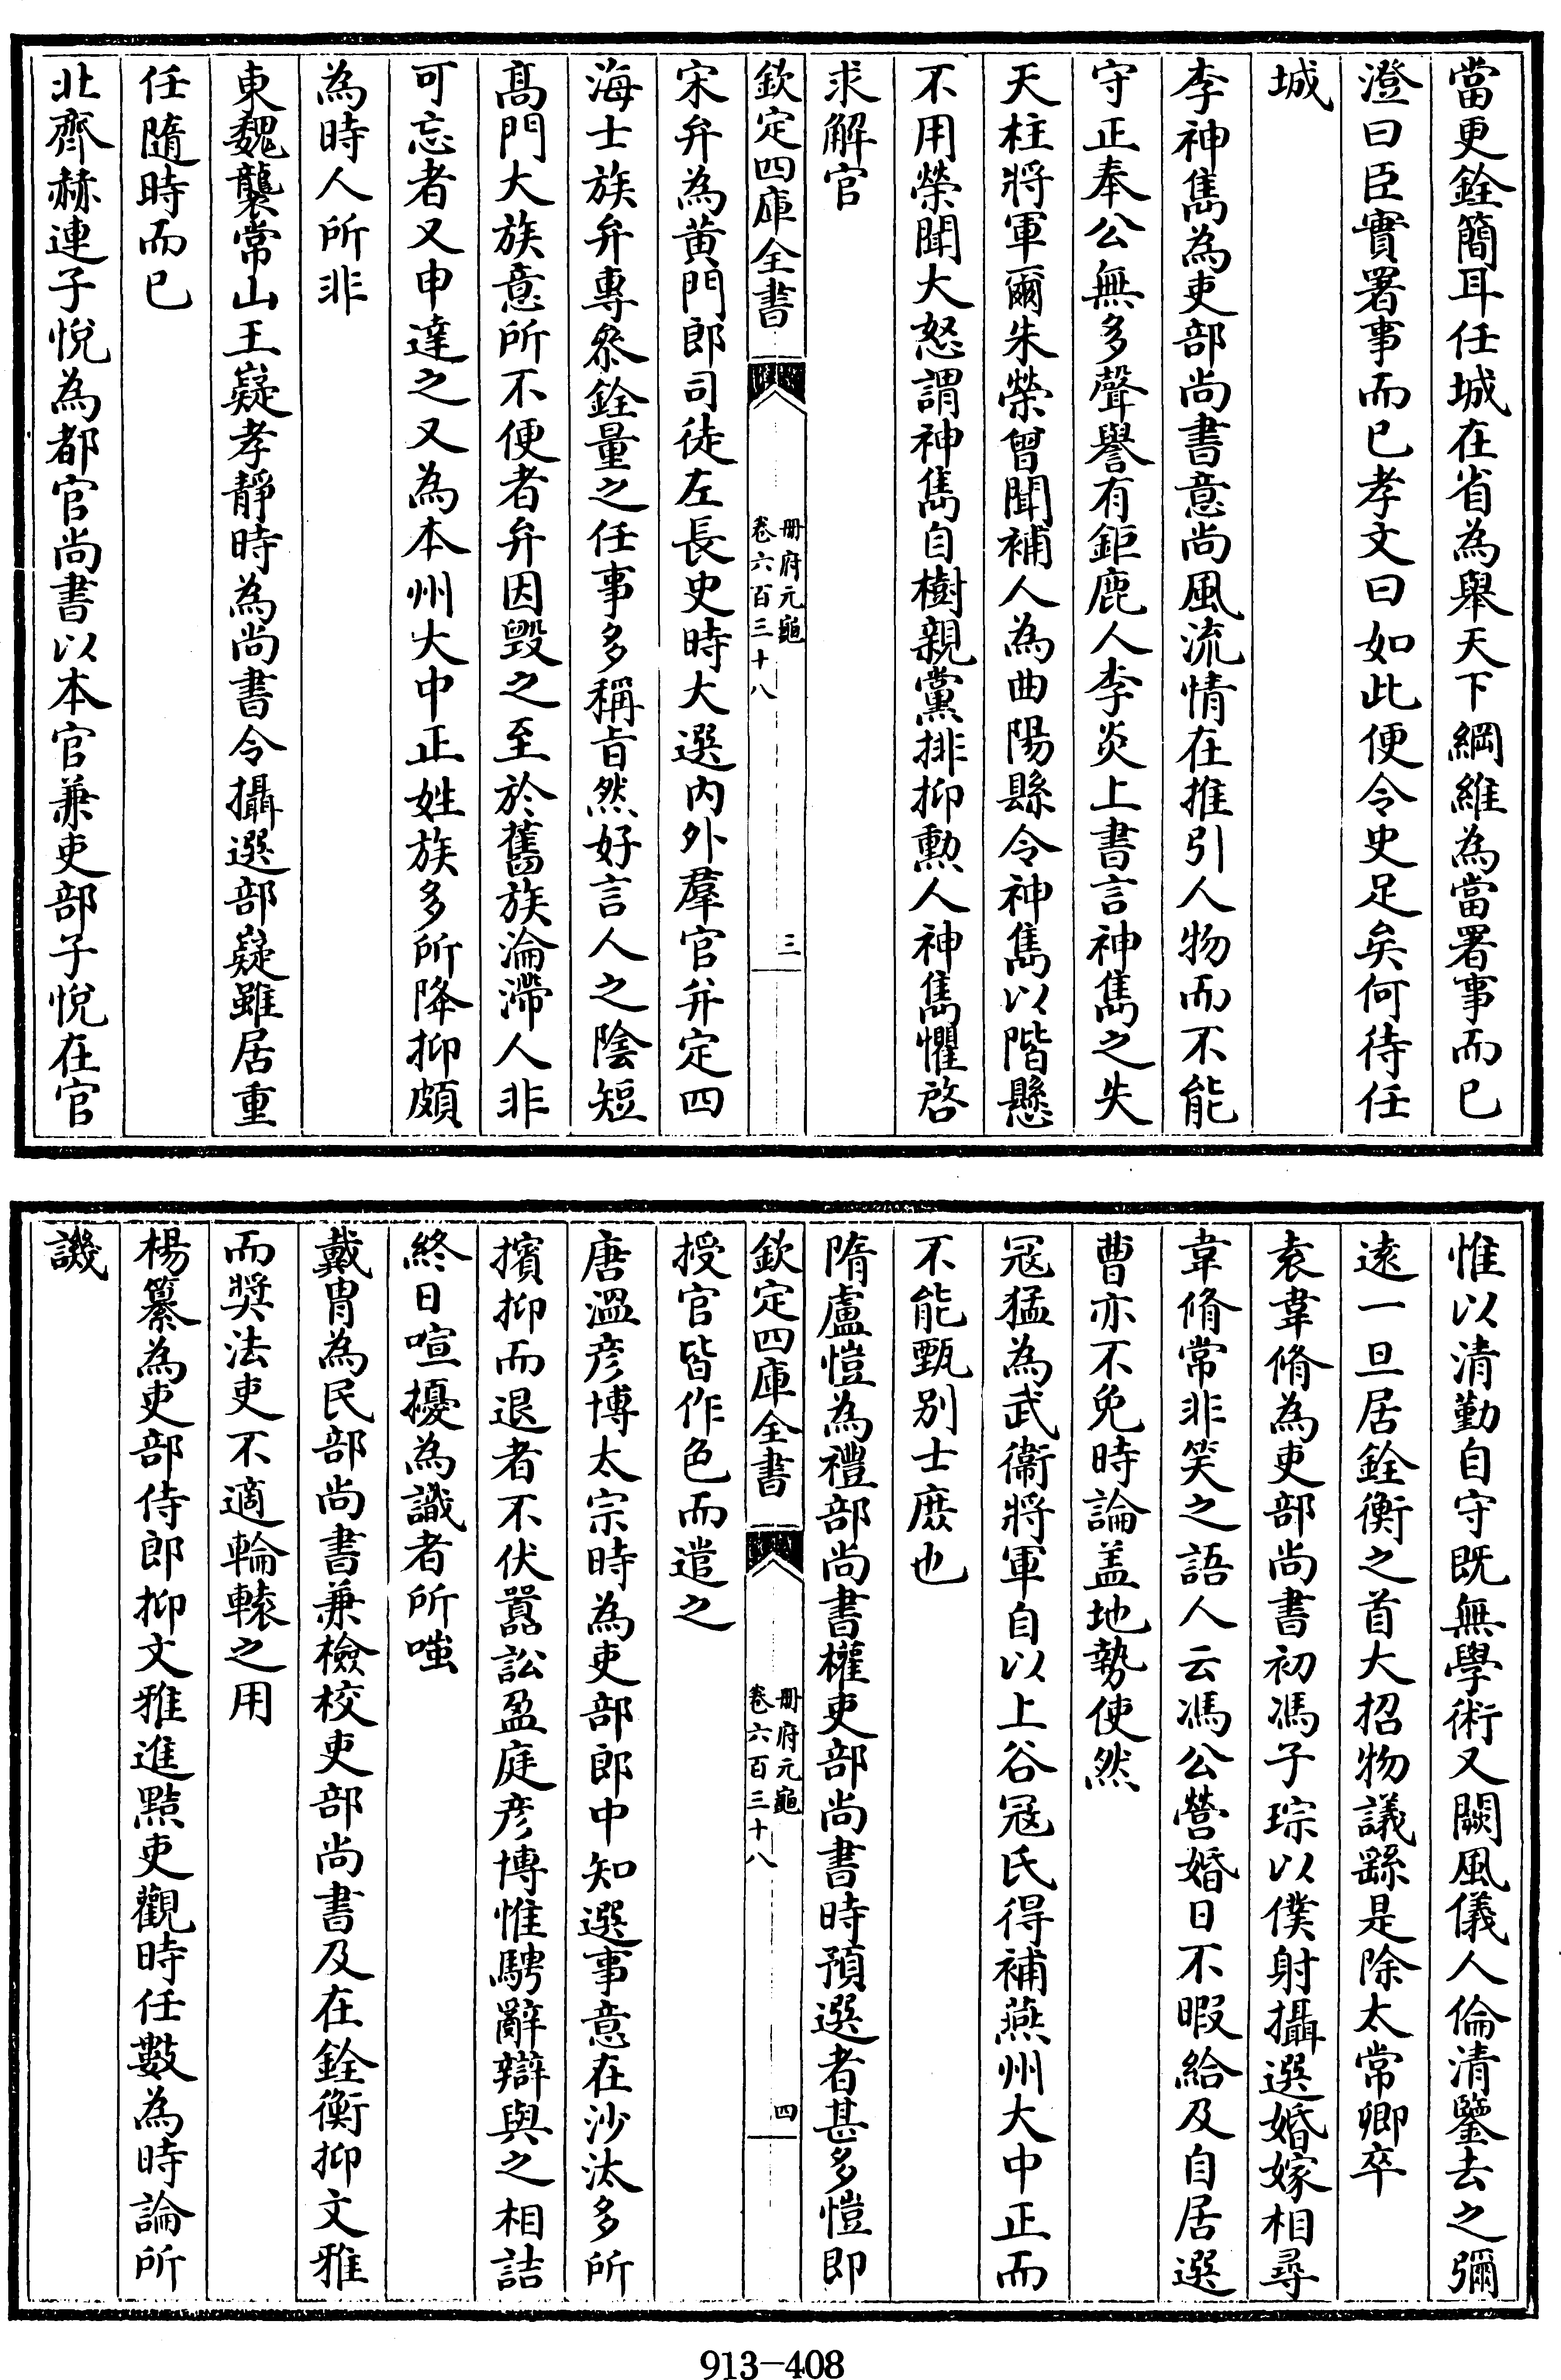 當更銓簡耳任城在省為舉天下綱維為當署事而已
澄曰臣實署事而已孝文曰如此便令史足矣何待任
城
李神雋為吏部尚書意尚風流情在推引人物而不能
守正奉公無多聲譽有鉅鹿人李炎上書言神雋之失
天柱將軍爾朱榮曾聞補人為曲陽縣令神雋以階懸
不用榮聞大怒謂神雋自樹親黨排抑勲人神雋懼啓
求解官
欽定四庫全書
册府元龜
卷六百三十八
三
宋弁為黄門郎司徒左長史時大選内外羣官并定四
海士族弁專叅銓量之任事多稱旨然好言人之陰短
髙門大族意所不便者弁因毀之至於舊族淪滯人非
可忘者又申達之又為本州大中正姓族多所降抑頗
為時人所非
東魏襲常山王嶷孝靜時為尚書令攝選部嶷雖居重
任隨時而已
北齊赫連子悅為都官尚書以本官兼吏部子悅在官
惟以清勤自守既無學術又闕風儀人倫清鑒去之彌
逺一旦居銓衡之首大招物議繇是除太常卿卒
袁韋脩為吏部尚書初馮子琮以僕射攝選婚嫁相尋
韋脩常非笑之語人云馮公營婚日不暇給及自居選
曹亦不免時論盖地勢使然
冦猛為武衞將軍自以上谷冦氏得補燕州大中正而
不能甄别士庶也
隋盧愷為禮部尚書權吏部尚書時預選者甚多愷即
欽定四庫全書
册府元龜
卷六百三十八
四
授官皆作色而遣之
唐溫彦博太宗時為吏部郎中知選事意在沙汰多所
擯抑而退者不伏嚚訟盈庭彦博惟騁辭辯與之相詰
終日喧擾為識者所嗤
戴胄為民部尚書兼檢校吏部尚書及在銓衡抑文雅
而奬法吏不適輪轅之用
楊纂為吏部侍郎抑文雅進黠吏觀時任數為時論所
譏
913-408